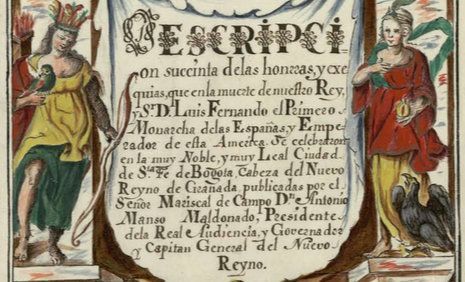 DESCRIPCI
on succinta delas honrras, y exe
quias, que en la muerte de nuestro Rey,
y Sr. D. Luis Fernando el Primero
Monarcha delas Españas, y Empe-
rador de esta America. Se celebraron
en la muy Noble, y muy Leal Ciudad
de Sta. Fe. de Bogotà Cabeza del Nuevo
Reyno de Granada, publicadas por el
Señor Mariscal de Campo Dn. Antonio
Manso Maldonado, Presidente
dela Real Audiencia, y Governador
y Capitan General del Nuevo
Reyno.